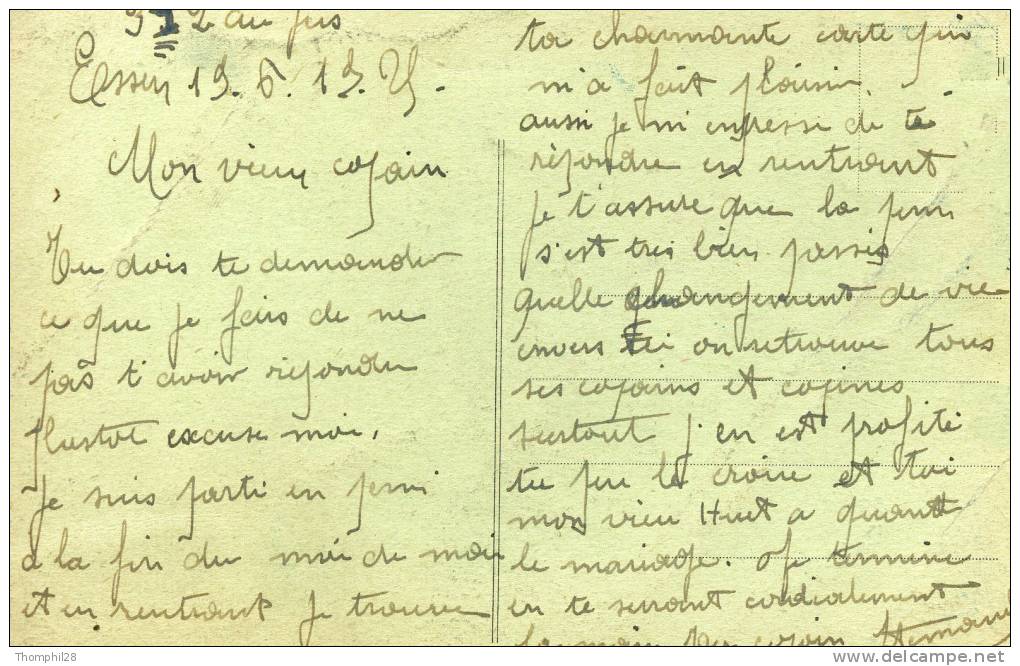 372 au jus
Essen 19.6.1925.
Mon vieux copain
Tu dois te demander
ce que je fais de ne
pas t'avoir répondu
plustot excuse moi,
Je suis parti en perm
à la fin du moi de mai
et en rentrant je trouve
ta charmante carte qui
m'a fait plaisir.
aussi je m'enpresse de te
répondre en rentrant
Je t'assure que la perm
s'est très bien passée
quelle changement de vie
envers on retrouve tous
ses copains et copines
surtout j'en est profité
tu peu le croire et toi
mon vieu Huet a quant
le mariage. Je termine
en te serrant cordialement
la main ton copain
Thomphil28